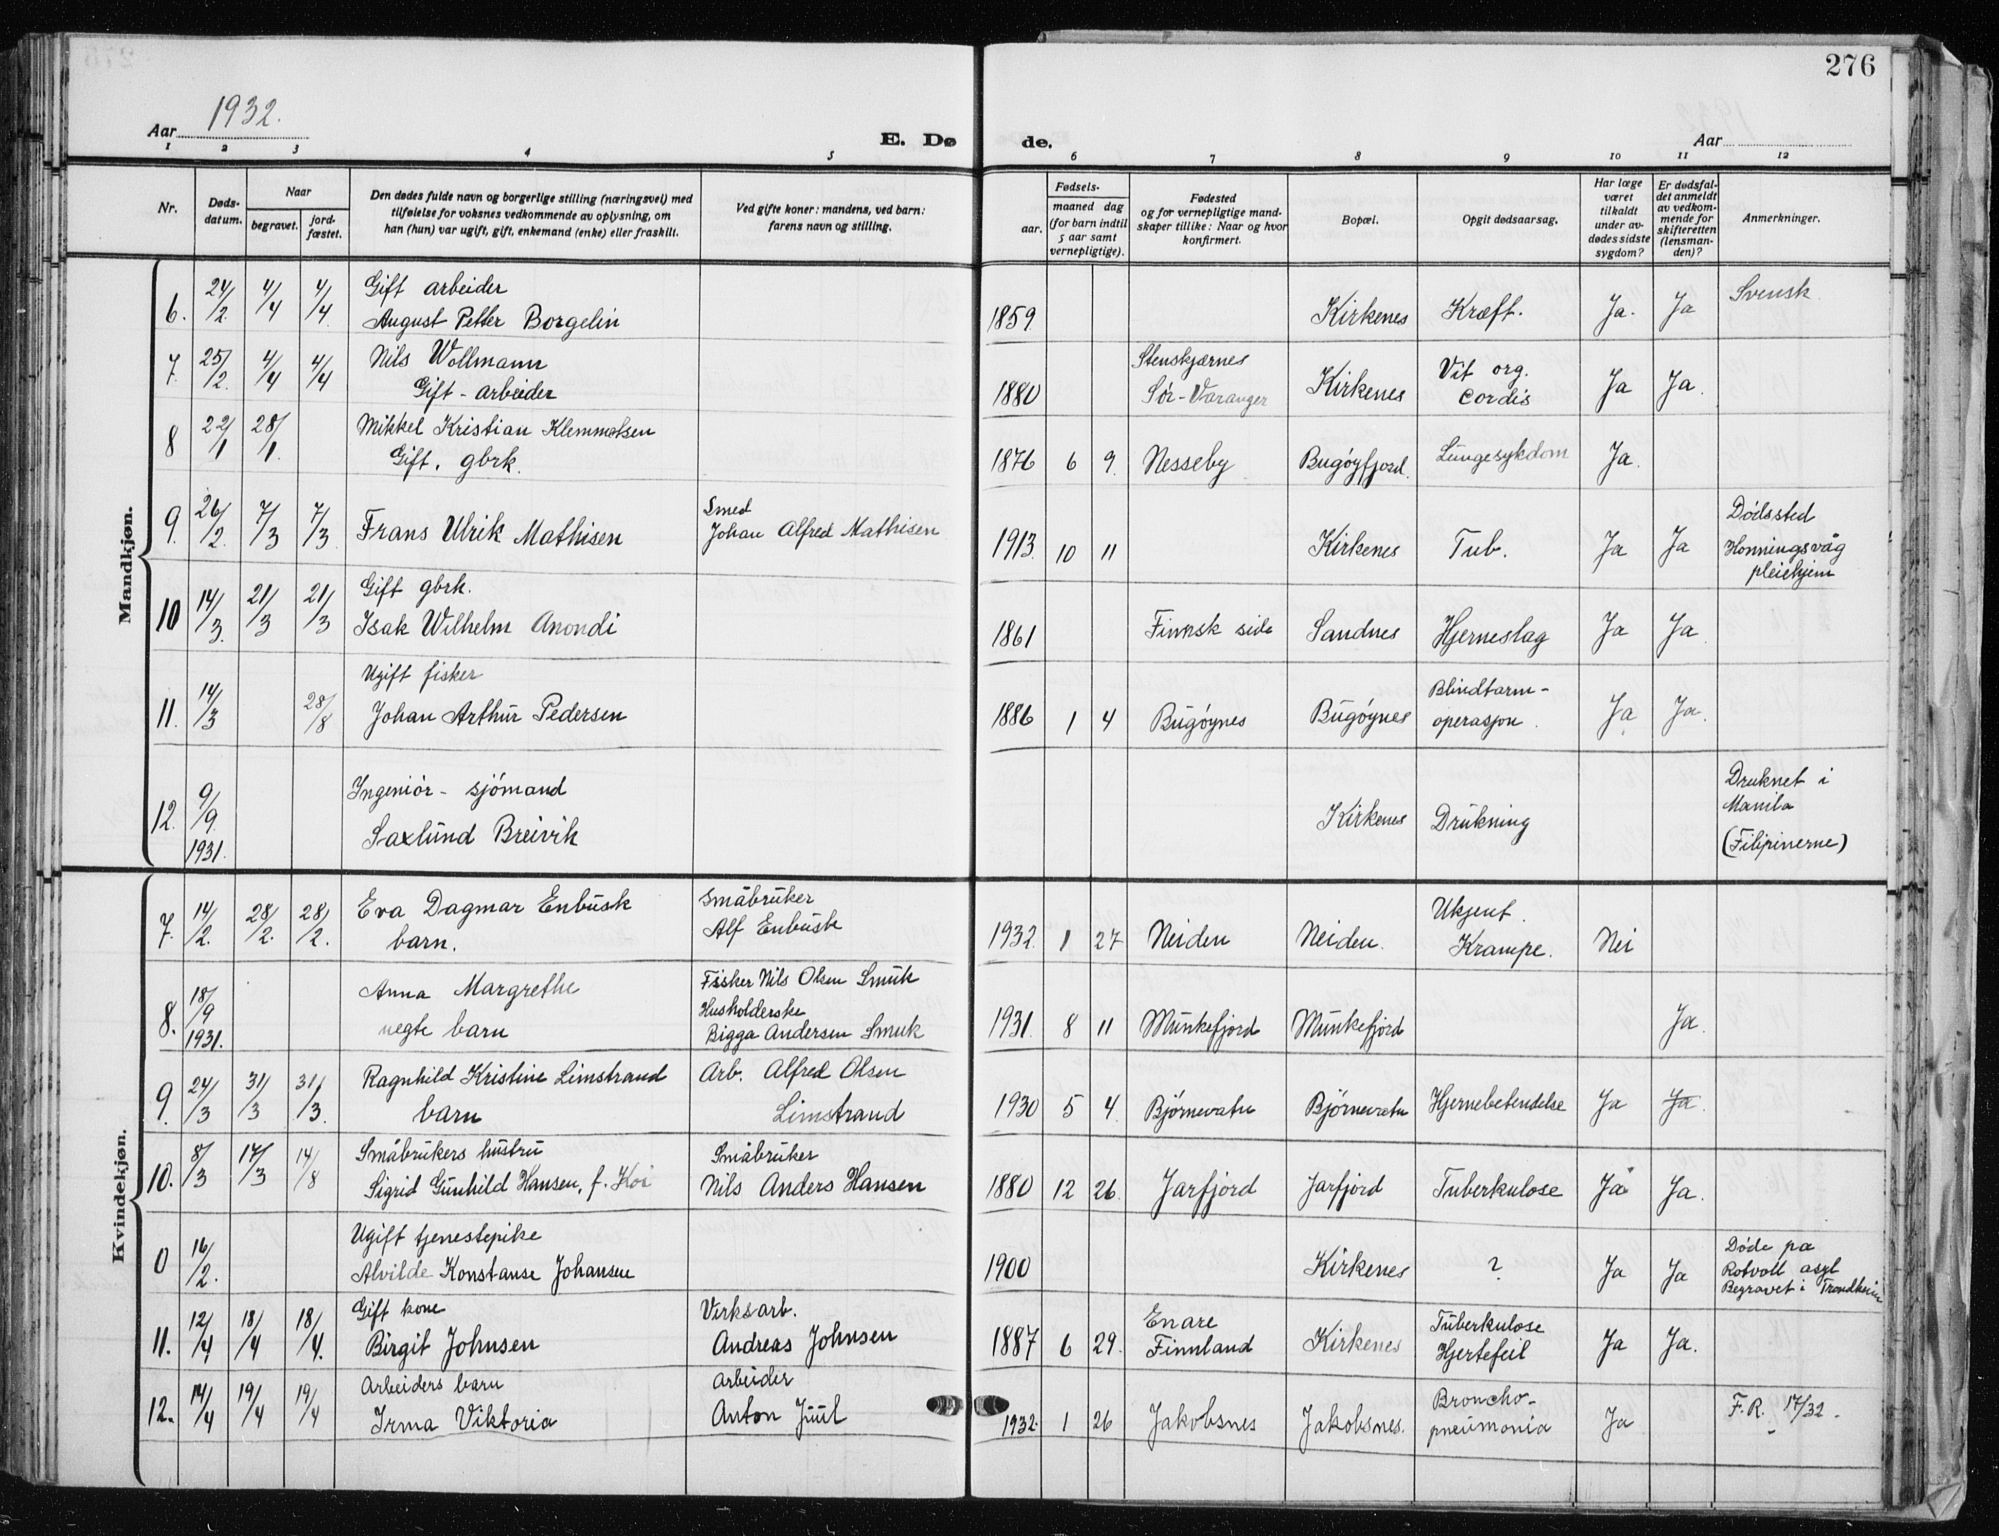 276
Aar 1932.
E. Døde.
Aar
1 2 3 4 5 6 7 8 9 10 11 12
Nr.
Døds-
datum.
Naar
begravet.
jord-
fæstet.
Den dødes fulde navn og borgerlige stilling (næringsvei) med
tilføielse for voksnes vedkommende av oplysning, om
han (hun) var ugift, gift, enkemand (enke) eller fraskilt.
Ved gifte koner: mandens, ved barn:
farens navn og stilling.
Fødsels-
aar.
maaned dag
(for barn indtil
5 aar samt
vernepligtige).
Fødested
og for vernepligtige mand-
skaper tillike: Naar og hvor
konfirmert.
Bopæl.
Opgit dødsaarsag.
Har læge
været
tilkaldt
under av-
dødes sidste
sygdom?
Er dødsfal-
det anmeldt
av vedkom-
mende for
skifteretten
(lensman-
den)?
Anmerkninger.
Mandkjøn.
6. 24/2. 4/4 4/4. Gift arbeider
August Petter Borgelin
1859 Kirkenes Kræft. Ja. Ja Svensk.
7. 25/2. 4/4 4/4 Nils Wollmann
Gift - arbeider
1880 Stenskjærnes
Sør-Varanger Kirkenes Vit org.
Cordis Ja Ja.
8 22/1 28/1. Mikkel Kristian Klemmetsen
Gift. gbrk.
1876 6 9. Nesseby Bugøyfjord. Lungesykdom Ja.
9. 26/2. 7/3 7/3. Frans Ulrik Mathisen
Smed
Johan Alfred Mathisen
1913. 10 11 Kirkenes Tub. Ja Ja Dødssted
Honningsvåg
pleiehjem
10 14/3. 21/3 21/3 Gift gbrk.
Isak Wilhelm Anondi
1861 Finnsk side Sandnes Hjerneslag Ja Ja.
11. 14/3 28/8 Ugift fisker
Johan Arthur Pedersen
1886 1 4 Bugøynes Bugøynes Blindtarm-
operasjon. Ja Ja.
12. 9/9. 1931. Ingeniør - sjømand
Saxlund Breivik
Kirkenes Drukning Druknet i
Manila
(Filipinerne)
Kvindekjøn.
7. 14/2. 28/2. 28/2. Eva Dagmar Enbusk
barn.
Småbruker
Alf Enbusk
1932. 1 27 Neiden Neiden. Ukjent.
Krampe. Nei
8. 18/9 1931. Anna Margrethe
uegte barn
Fisker Nils Olsen Smuk
Husholderske
Bigga Andersen Smuk
1931. 8 11 Munkefjord Munkefjord Ja.
9. 24/3 31/3 31/3. Ragnhild Kristine Limstrand
barn
Arb. Alfred Olsen
Limstrand
1930 5 4. Bjørnevatn Bjørnevatn Hjernebetendelse Ja Ja
10. 8/3 17/3 14/8 Småbrukers hustru
Sigrid Gunhild Hansen, f. Koi
Småbruker
Nils Anders Hansen
1880 12 26. Jarfjord Jarfjord Tuberkulose Ja Ja.
0 16/2. Ugift tjenestepike
Alvilde Konstanse Johansen
1900 Kirkenes ? Ja Ja Døde pa
Rotvoll asyl
Begravet i Trondheim
11. 12/4 18/4 18/4. Gift kone
Birgit Johnsen
Verksarb.
Andreas Johnsen
1887 6 29. Enare
Finnland Kirkenes Tuberkulose
Hjertefeil Ja Ja.
12. 14/4 19/4 19/4 Arbeiders barn
Irma Viktoria
Arbeider
Anton Juul
1932. 1 26 Jakobsnes Jakobsnes. Broncho-
pneumonia Ja F.R. 17/32.